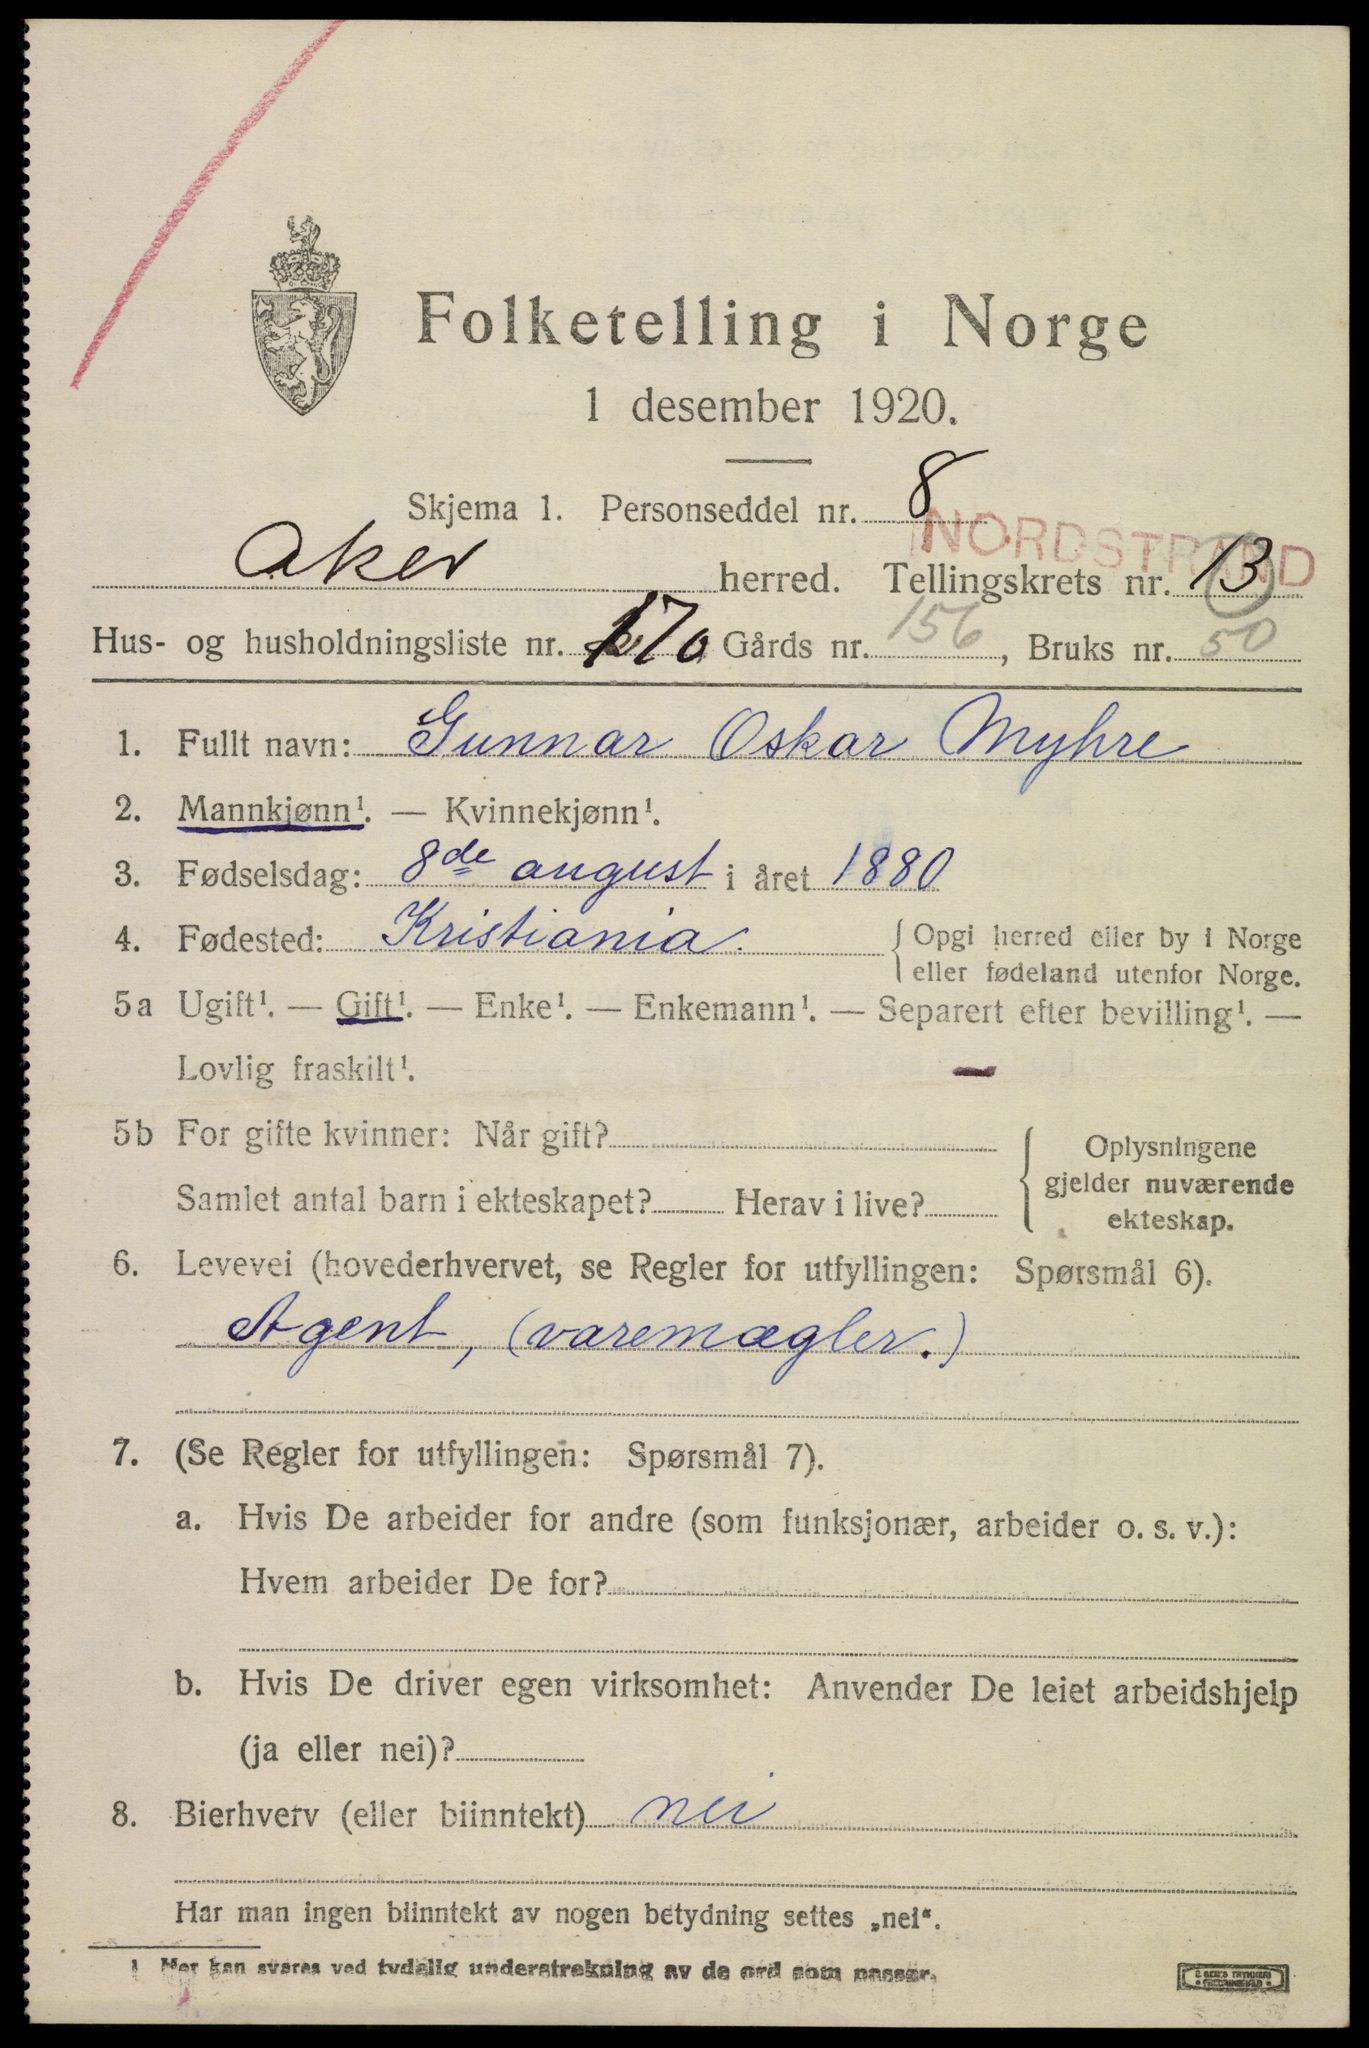 Folketelling i Norge
1 desember 1920.
Skjema 1. Personseddel nr. 8
NORDSTRAND
Aker herred. Tellingskrets nr. 13
Hus- og husholdningsliste nr. 170 Gårds nr. 156, Bruks nr. 50
1. Fullt navn: Gunnar Oskar Myhre
2. Mannkjønn¹. — Kvinnekjønn¹.
3. Fødselsdag: 8de august i året 1880
4. Fødested: Kristiania. { Opgi herred eller by i Norge
eller fødeland utenfor Norge.
5a Ugift¹. — Gift¹. — Enke¹. — Enkemann¹. — Separert efter bevilling¹. —
Lovlig fraskilt¹.
5b For gifte kvinner: Når gift?
Samlet antal barn i ekteskapet? Herav i live?
Oplysningene
gjelder nuværende
ekteskap.
6. Levevei (hovederhvervet, se Regler for utfyllingen: Spørsmål 6).
Agent, (varemægler.)
7. (Se Regler for utfyllingen: Spørsmål 7).
a. Hvis De arbeider for andre (som funksjonær, arbeider o. s. v.):
Hvem arbeider De for?
b. Hvis De driver egen virksomhet: Anvender De leiet arbeidshjelp
(ja eller nei)?
8. Bierhverv (eller biinntekt) nei
Har man ingen biinntekt av nogen betydning settes „nei“.
1 Her kan svares ved tydelig understrekning av de ord som passer.